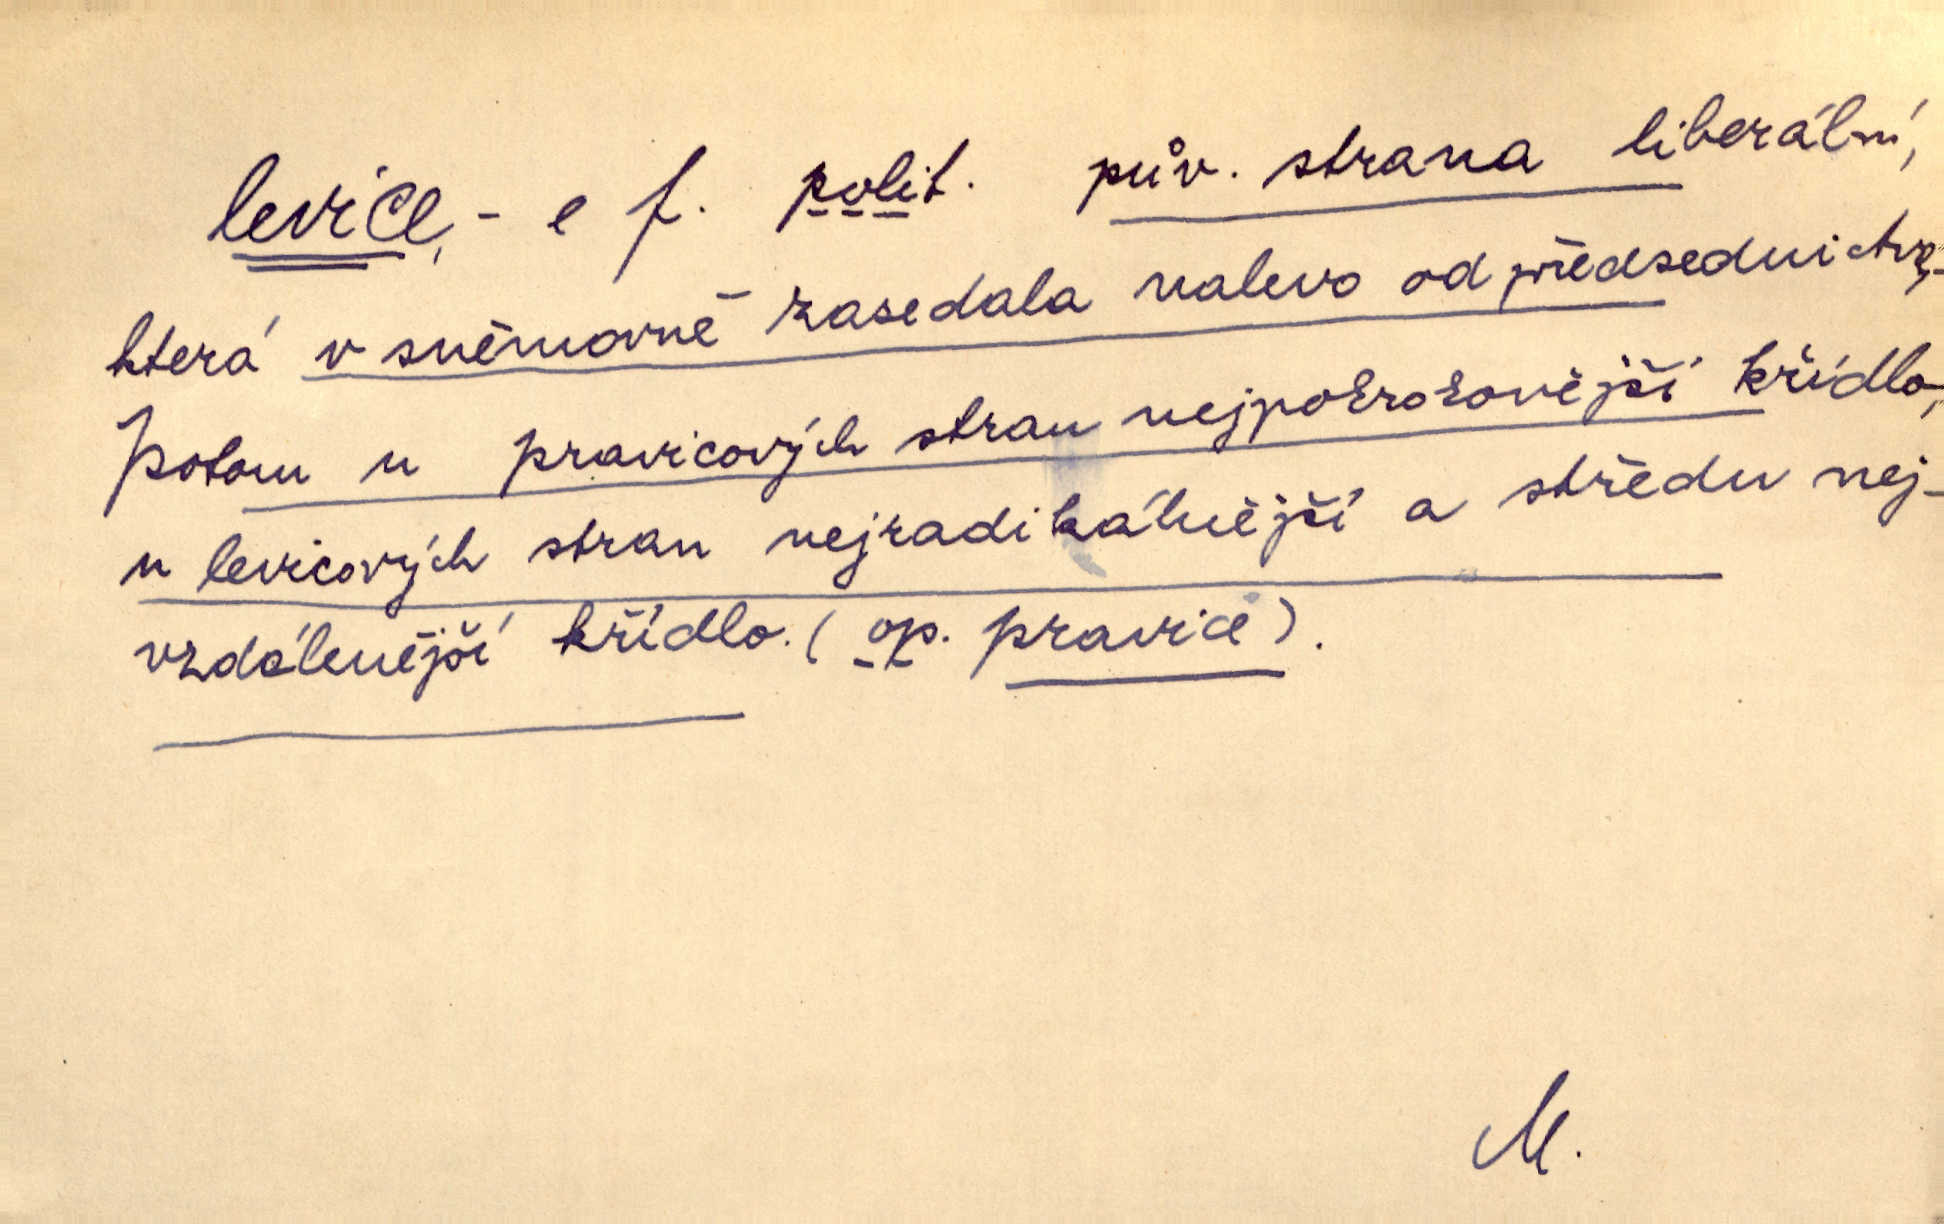 levice, -e f. polit. pův. strana liberální,
která v sněmovně zasedala nalevo od předsednictva,
potom u pravicových stran nejpokrokovější křídlo,
u levicových stran nejradikálnější a středu nej-
vzdálenější křídlo. (op. pravice).
M.